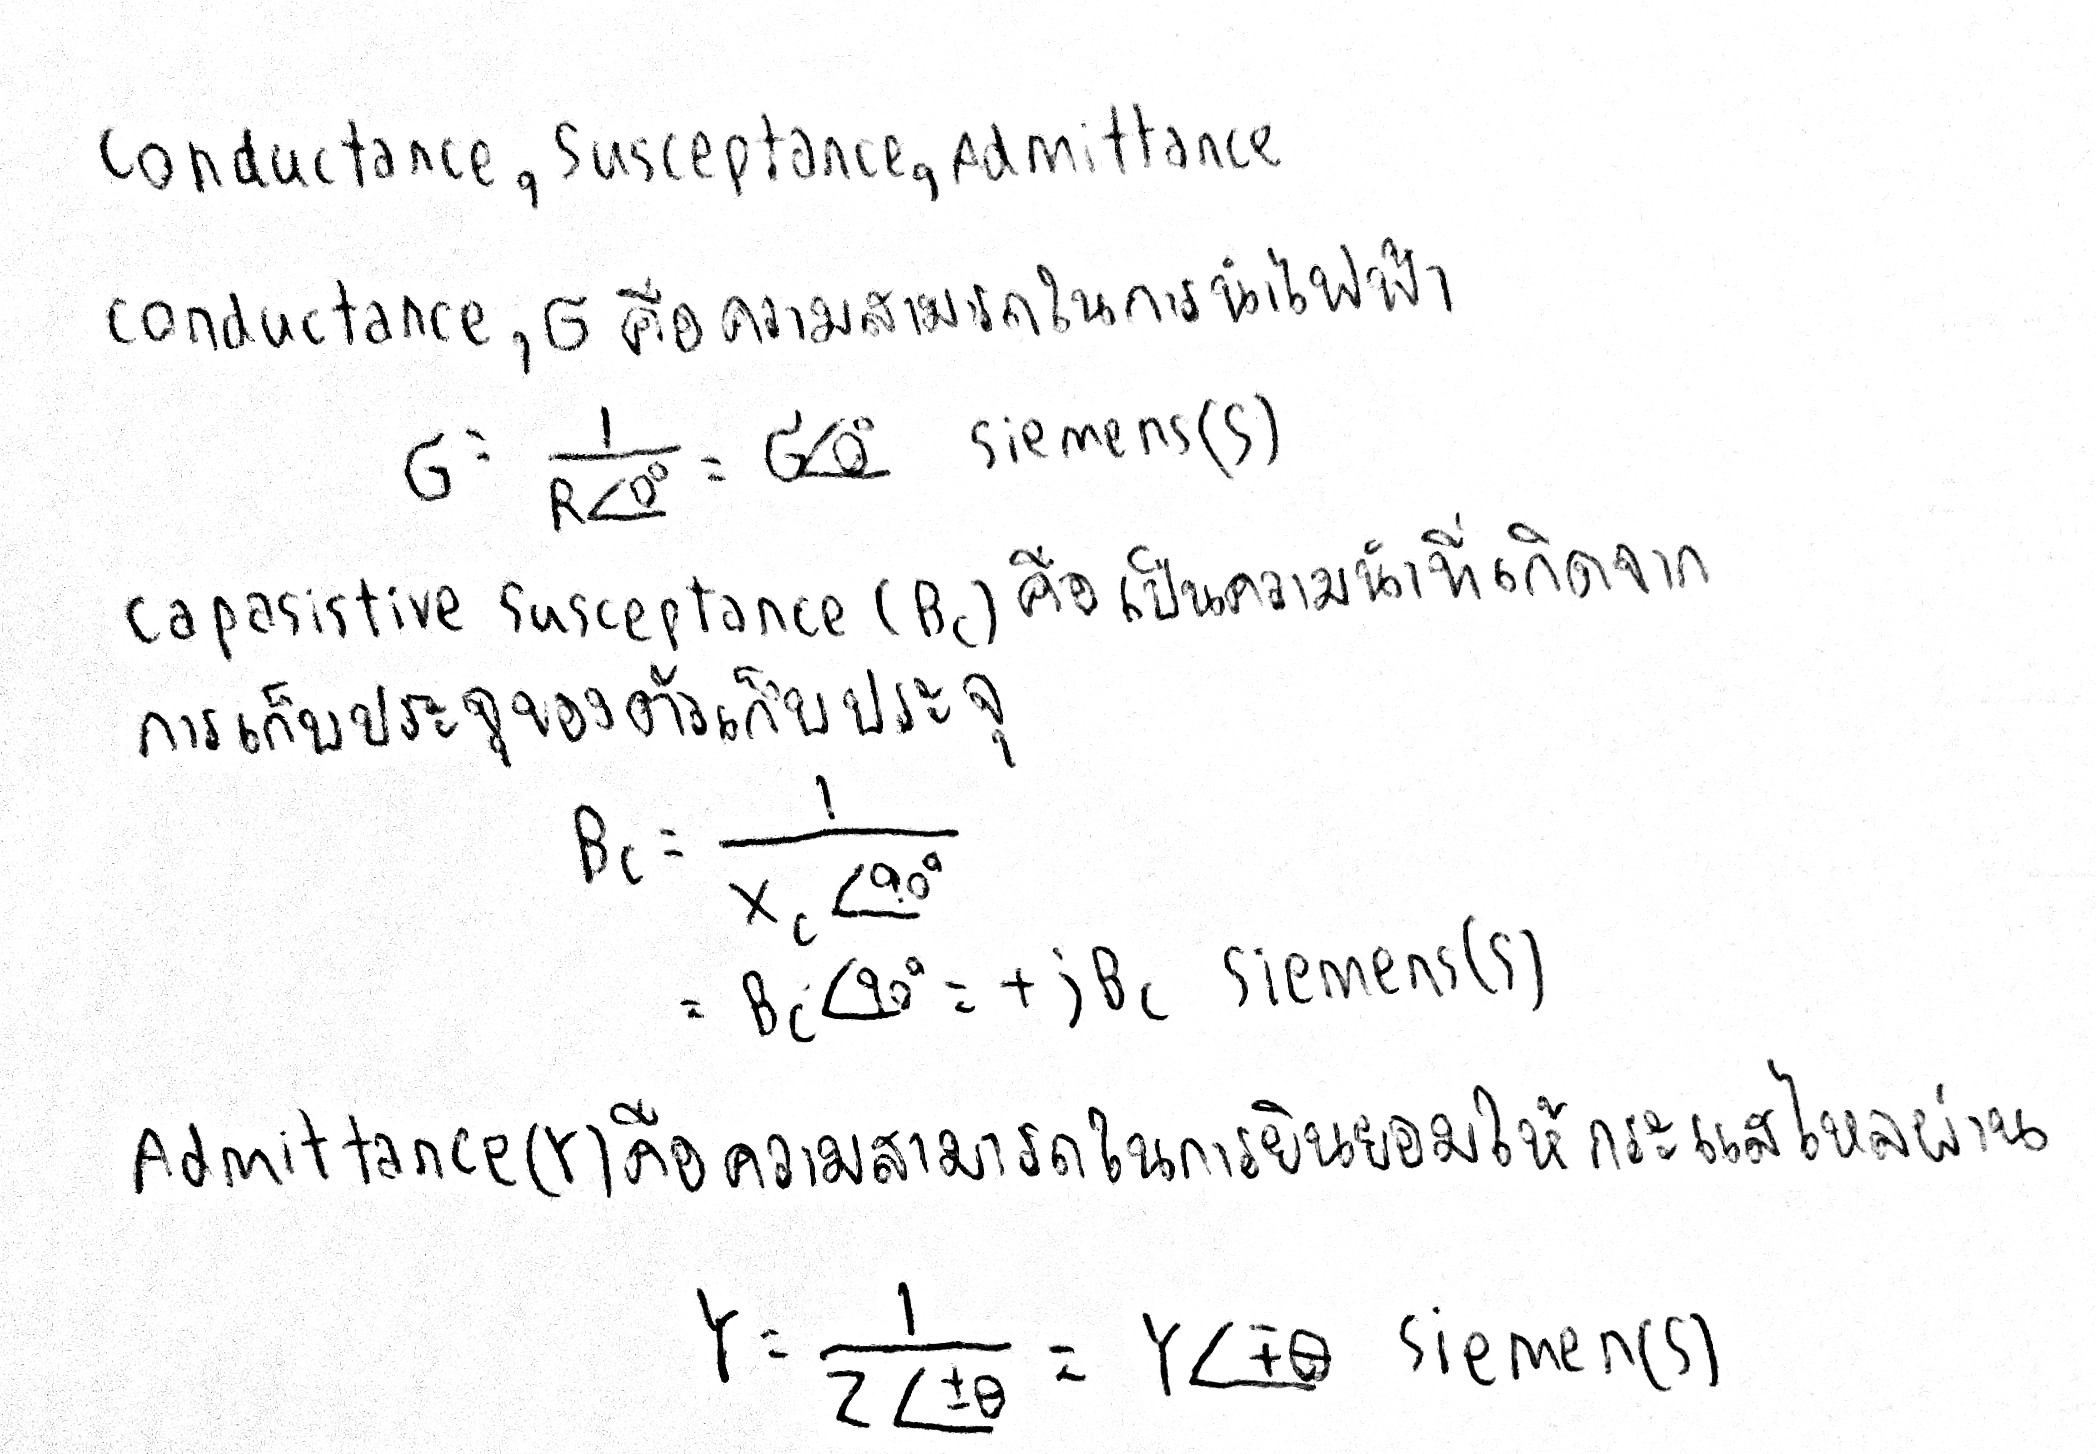 Conductance, Susceptance, Admittance
conductance, G คือ ความสามารถในการนำไฟฟ้า
G = 1/R∠0° = G∠0° siemens(S)
capasistive susceptance (Bc) คือ เป็นความนำที่เกิดจาก
การเก็บประจุของตัวเก็บประจุ
Bc = 1/Xc∠90°
= Bc∠90° = +jBc siemens(S)
Admittance(Y) คือ ความสามารถในการยินยอมให้กระแสไหลผ่าน
Y = 1/Z∠±θ = Y∠∓θ siemen(S)